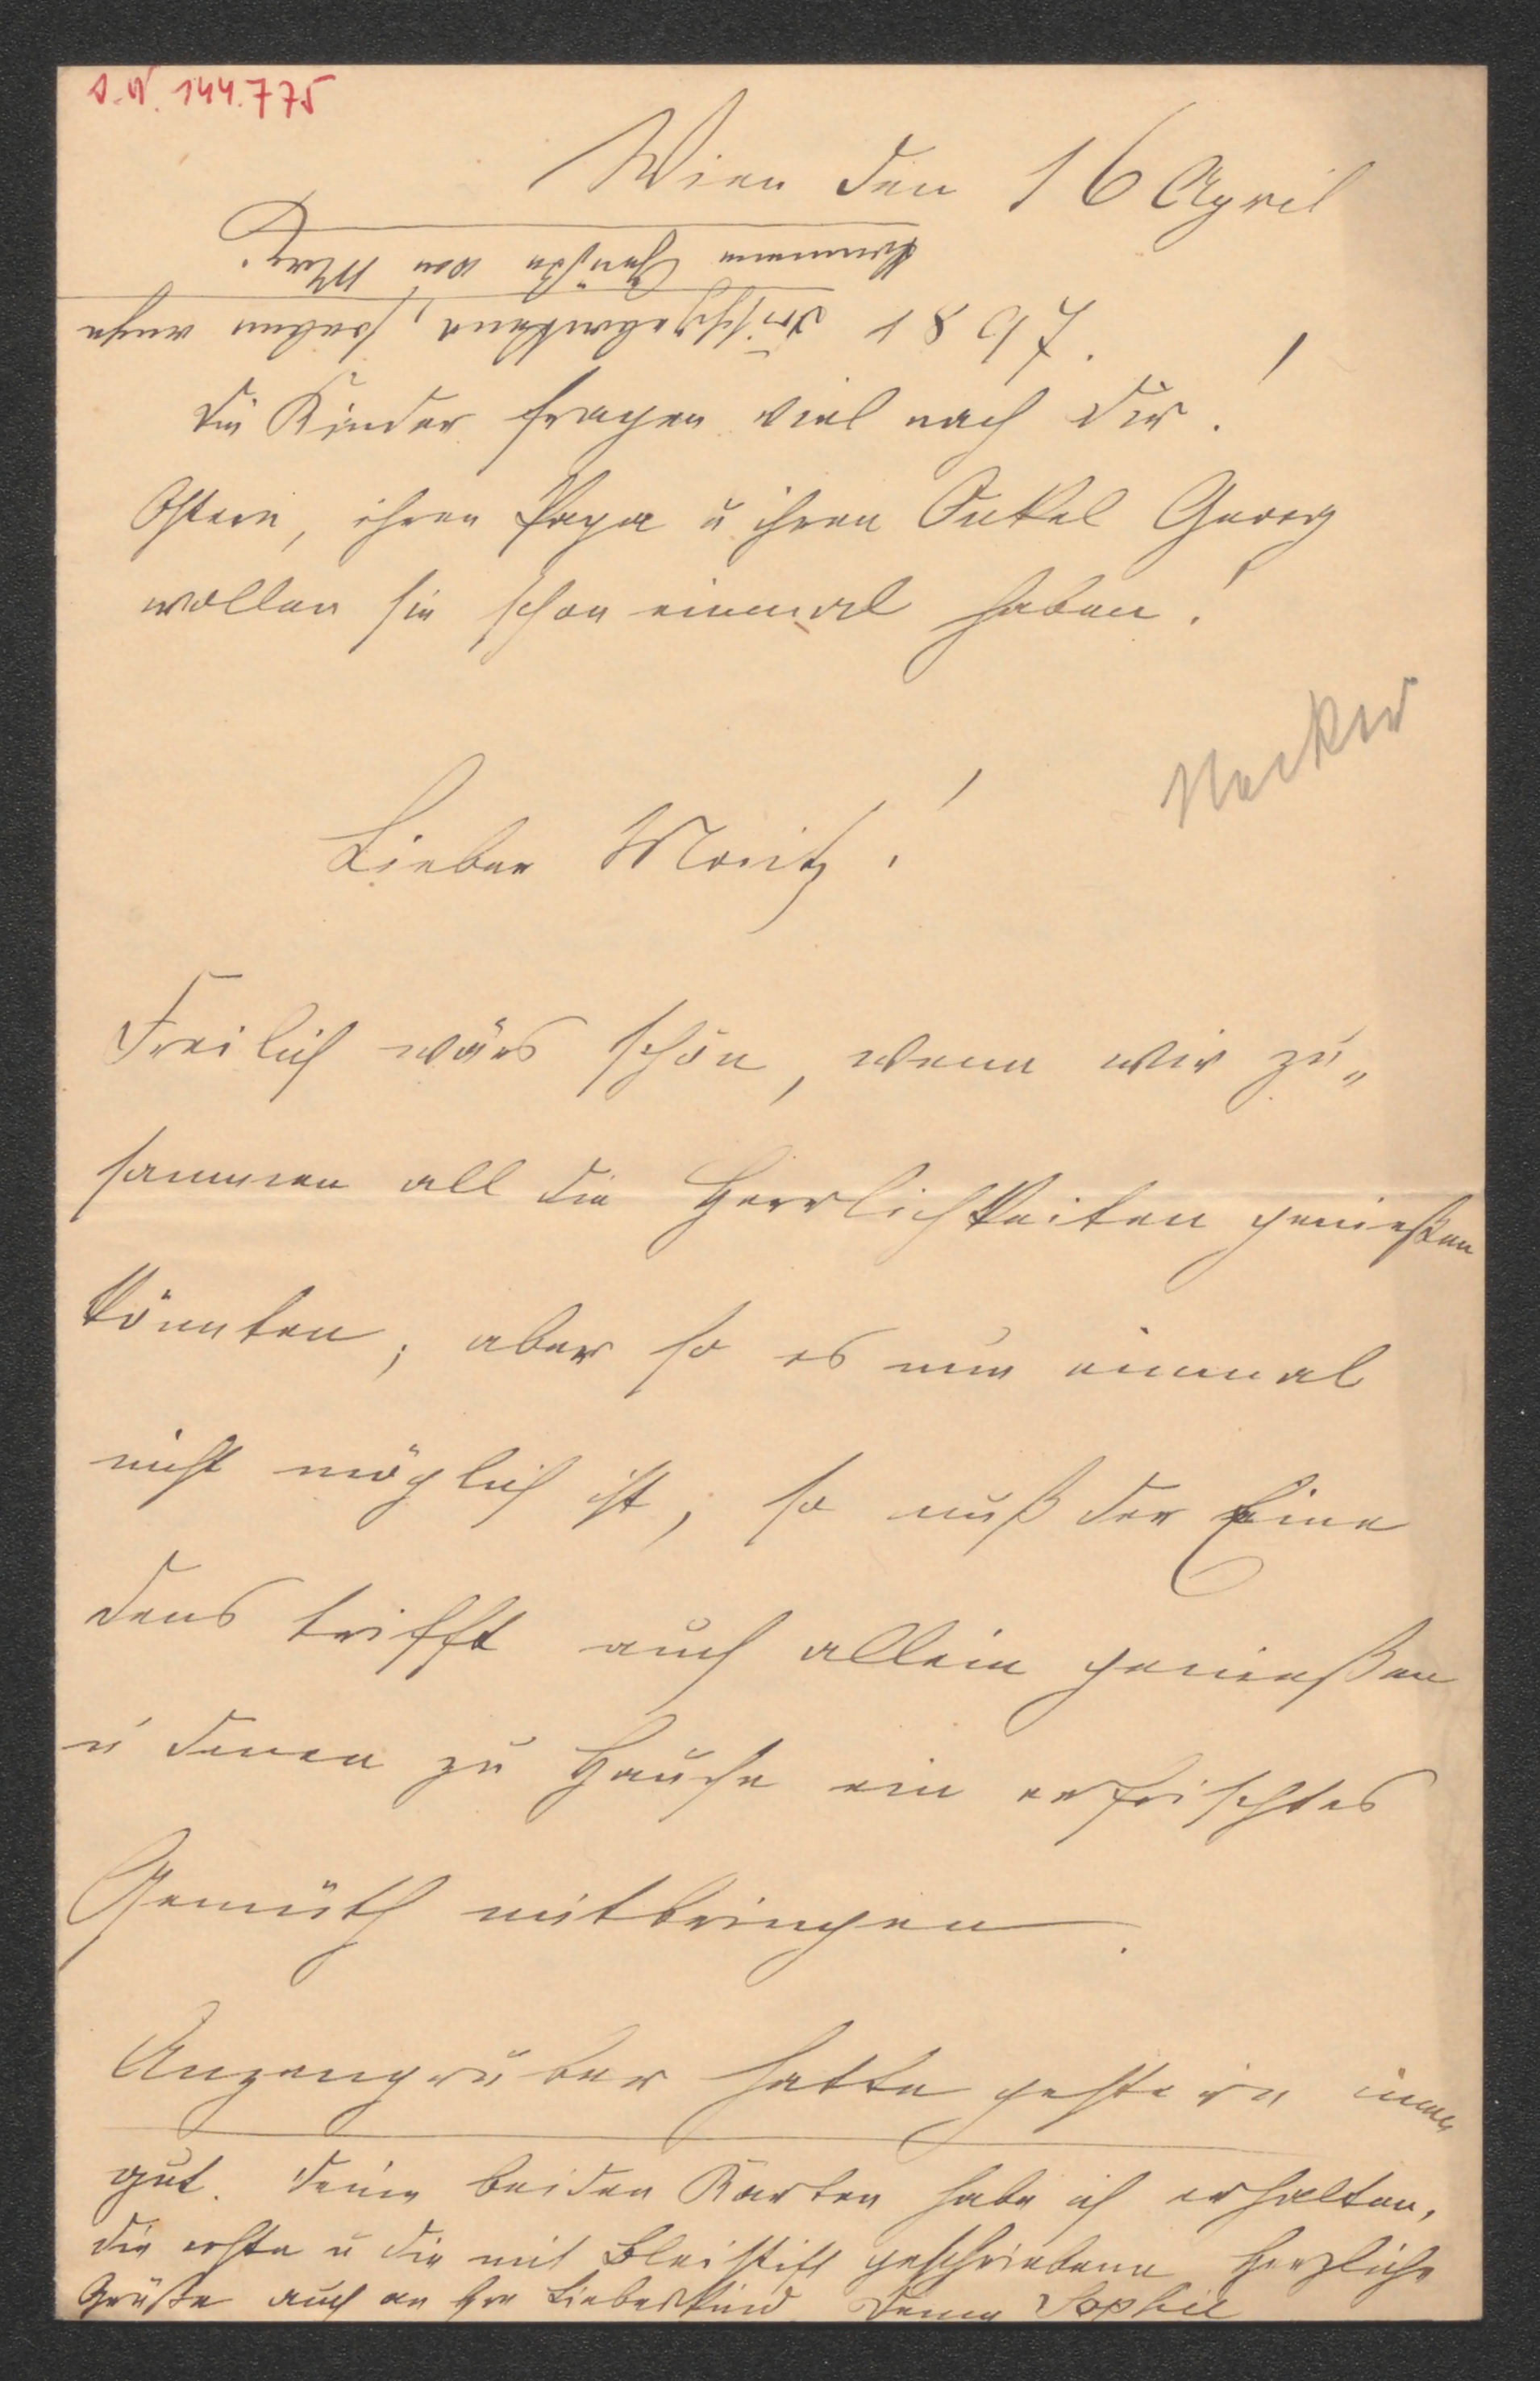 S. N. 144.775
Wien den 16 April
1897.
Die Kinder fragen viel nach Dir!
Ostern, ihren Papa u ihren Onkel Georg
wollen sie schon einmal haben!
Necker
Lieber Moritz!
Freilich wärs schön, wenn wir zu„
sammen all die Herrlichkeiten genießen
könnten, aber so es nun einmal
nicht möglich ist, so muß der Eine
dens trifft auch allein genießen
u denen zu Hause ein erfrischtes
Gemüth mitbringen.
Anzengruber hatte gestern
gut. Deine beiden Karten habe ich erhalten,
die erste u die mit Bleistift geschriebene Herzliche
Grüße auch an Hrn Liebeskind Deine Sophie